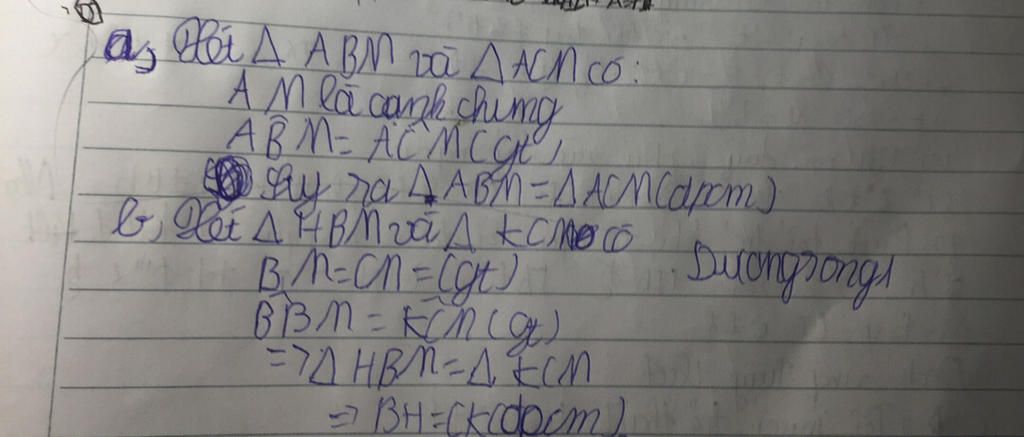 a, Xét Δ ABM và Δ ACM có:
AM là cạnh chung
AB̂M = AĈM (gt)
Suy ra Δ ABM = Δ ACM (đpcm)
b, Xét Δ HBM và Δ KCM có
BM = CM = (gt)
Duongrong1
B̂BM = KĈM (gt)
=> Δ HBM = Δ KCM
=> BH = CK (đpcm)